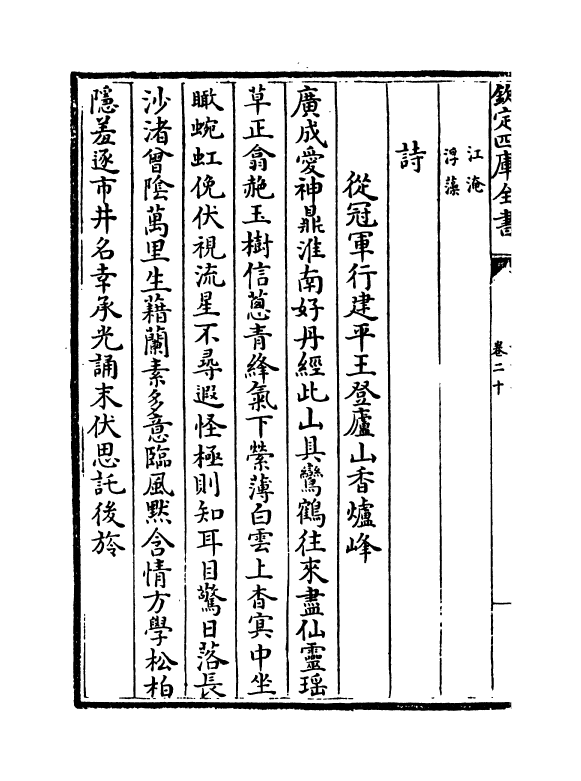 欽定四庫全書
卷二十
江淹
浮藻
詩
從冠軍行建平王登廬山香爐峰
廣成愛神鼎淮南好丹經此山具鸞鶴往來盡仙靈瑶
草正翕赩玉樹信蔥青絳氣下縈薄白雲上杳㝠中坐
瞰蜿虹俛伏視流星不尋遐怪極則知耳目驚日落長
沙渚曾陰萬里生藉蘭素多意臨風黙含情方學松柏
隱羞逐市井名幸承光誦末伏思託後旍